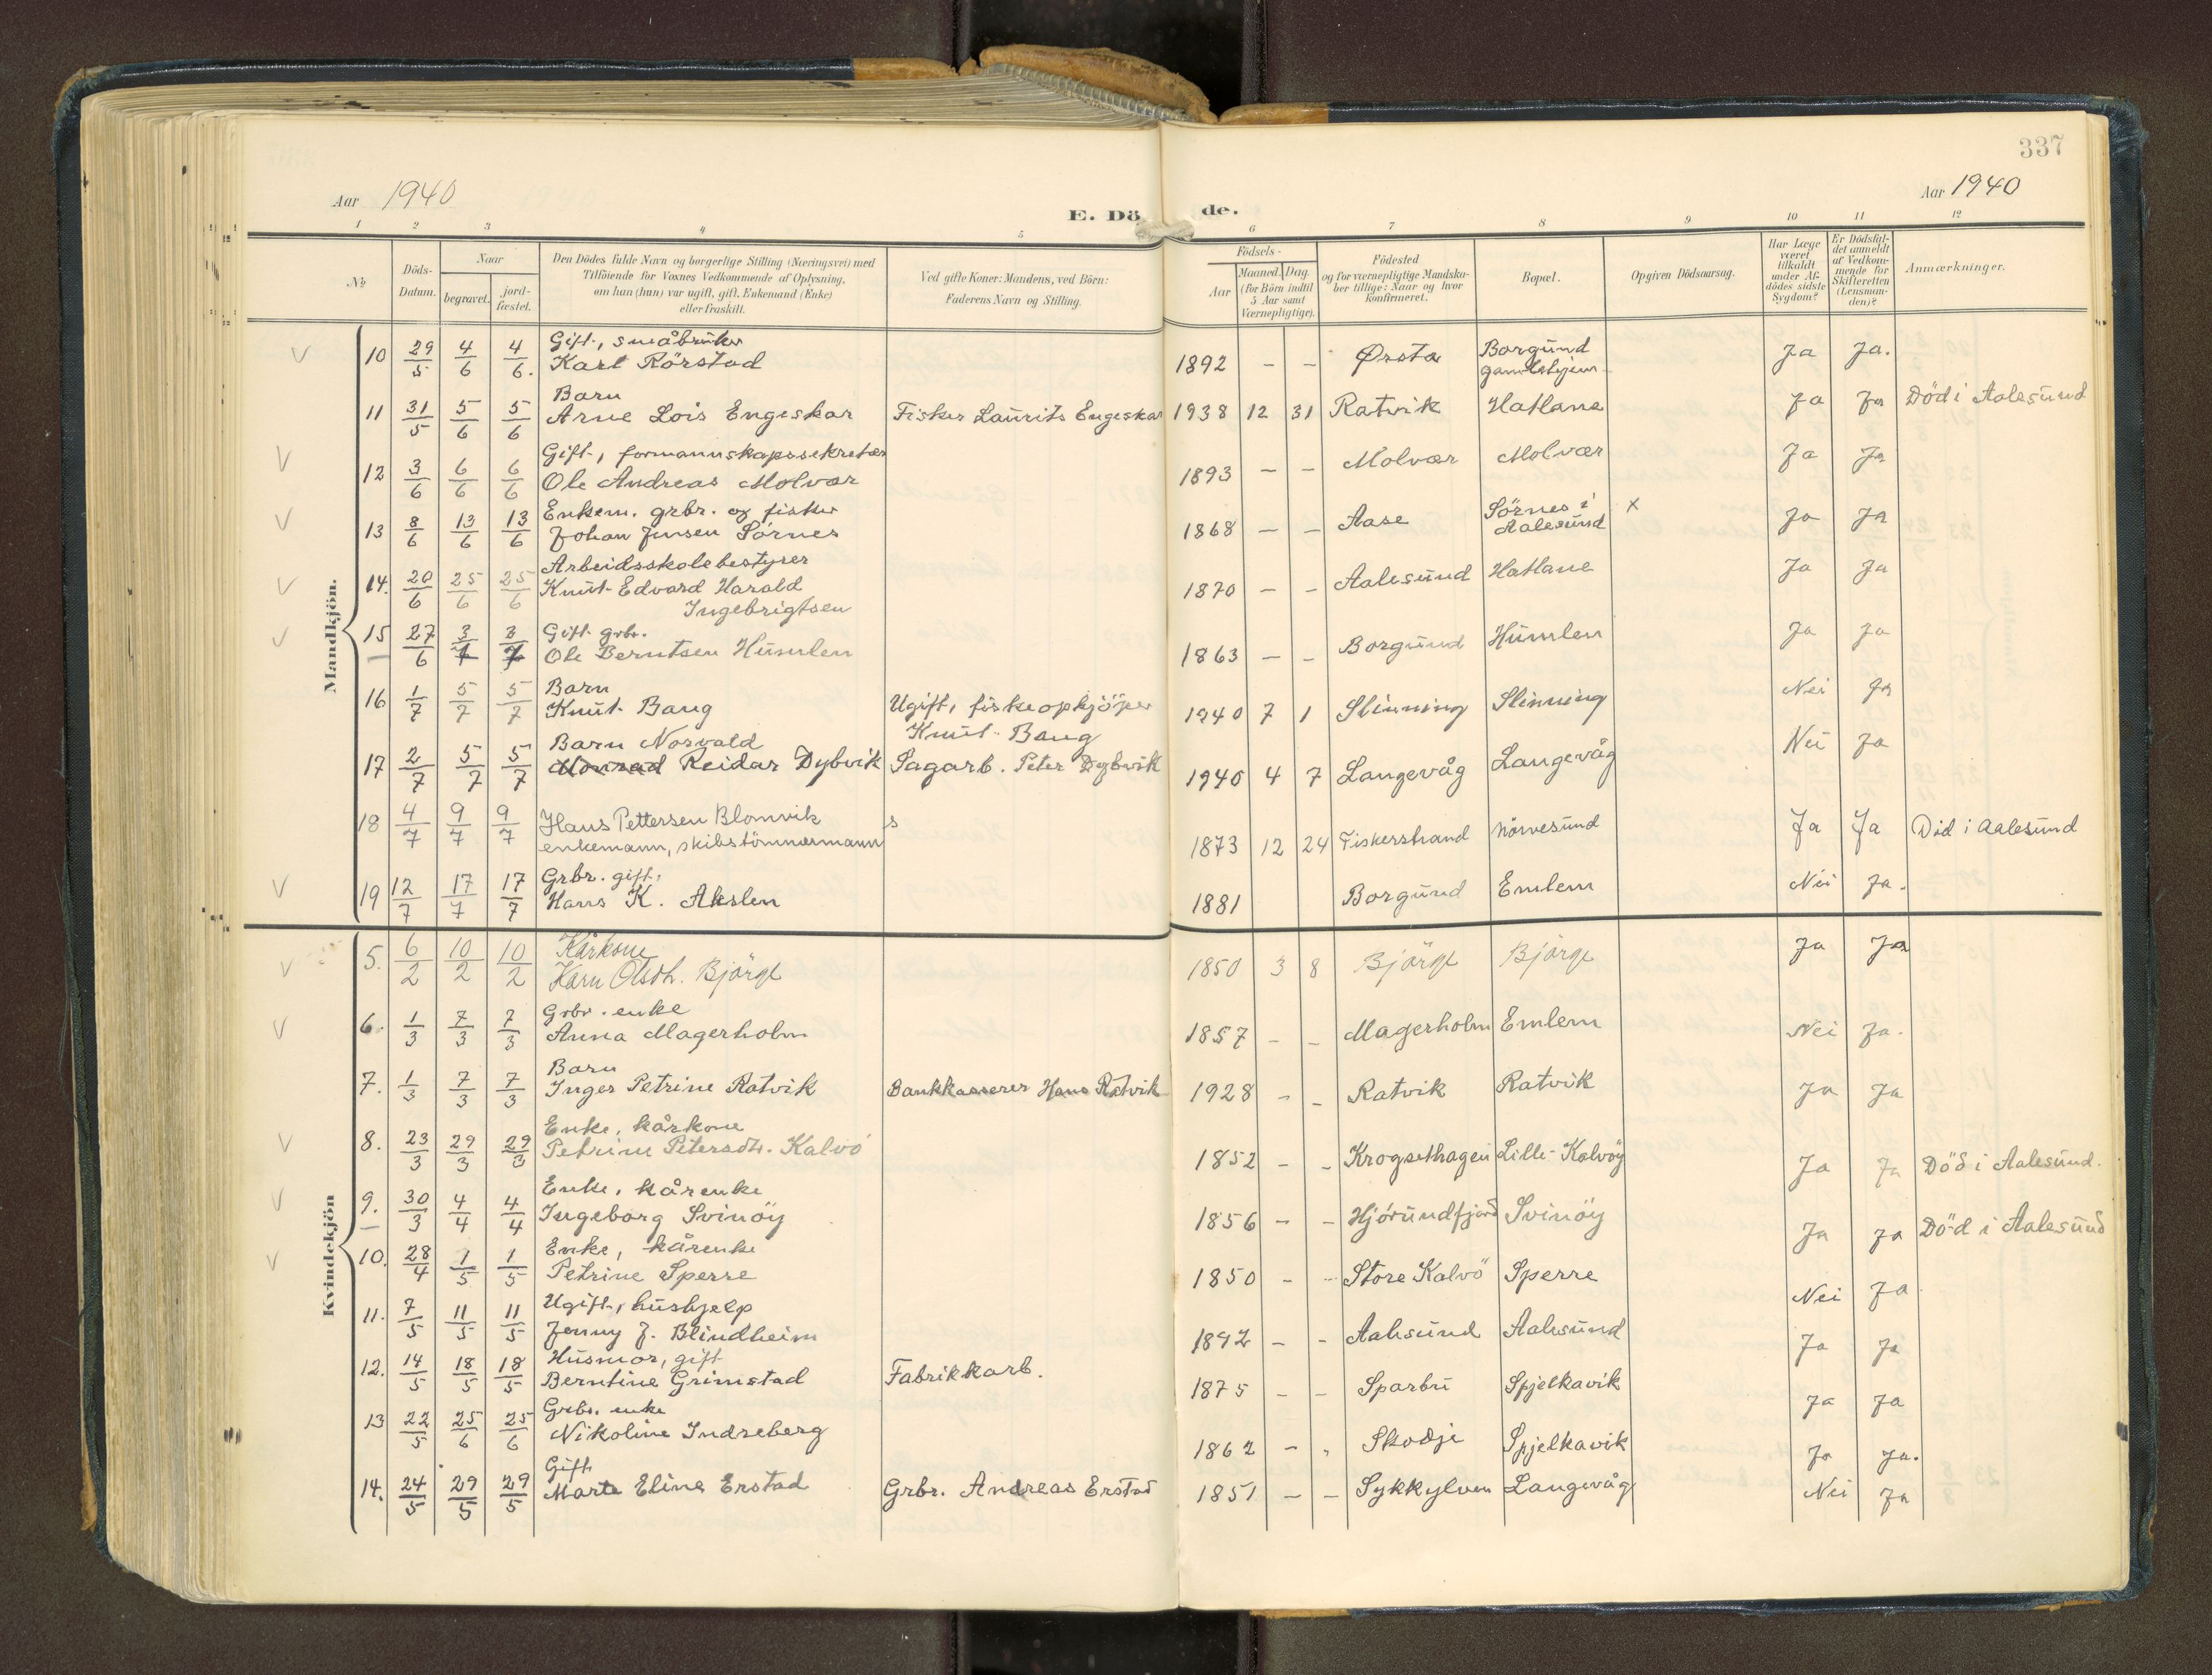 337
Aar 1940
E. Dö
de.
Aar 1940
1 2 3 4 5 6 7 8 9 10 11 12
No
Döds-Datum.
Naar
begravet.
jordfæstet.
Den Dödes fulde Navn og borgerlige Stilling (Næringsvei) med
Tilföiende for Voxnes Vedkommende af Oplysning,
om han (hun) var ugift, gift, Enkemand (Enke)
eller fraskilt.
Ved gifte Koner: Mandens, ved Börn:
Faderens Navn og Stilling.
Födsels-
Aar
Maaned. Dag.
(for Börn indtil
5 Aar samt
Værnepligtige).
Födested
og for værnepligtige Mandska-
ber tillige: Naar og hvor
konfirmeret.
Bopæl.
Opgiven Dödsaarsag.
Har Læge
været
tilkaldt
under Af-
dödes sidste
Sygdom?
Er Dödsfal-
det anmeldt
af Vedkom-
mende for
Skifteretten
(Lensman-
den)?
Anmærkninger.
Mandkjön.
Gift, småbruker Borgund
10 29/5 4/6 4/6. Karl Rörstad 1892 – – Ørsta gamlehjem Ja Ja.
Barn
11 31/5 5/6 5/6 Arne Lois Engeskar Fisker Laurits Engeskar 1938 12 31 Ratvik Hatlane Ja Ja Död i Aalesund
Gift, formannskapssekretær
12 3/6 6/6 6/6 Ole Andreas Molvær 1893 – – Molvær Molvær Ja Ja
Enkem. grbr. og fisker Sörnes i
13 8/6 13/6 13/6 Johan Jensen Sörnes 1868 – – Aase Aalesund x Ja Ja
Arbeidsskolebestyrer
14. 20/6 25/6 25/6 Knut Edvard Harald 1870 – – Aalesund Hatlane Ja Ja
Ingebrigtsen
Gift grbr.
15 27/6 3/7 3/7 Ole Berntsen Humlen 1863 – – Borgund Humlen Ja Ja
Barn
16 1/7 5/7 5/7 Knut Bang Ugift, fiskeopkjöper 1940 7 1 Slinning Slinning Nei Ja
Knut Bang
Barn Norvald
17 2/7 5/7 5/7 Reidar Dybvik Sagarb. Peter Dybvik 1940 4 7 Langevåg Langevåg Nei Ja
18 4/7 9/7 9/7 Hans Pettersen Blomvik s 1873 12 24 Fiskerstrand Nörvesund Ja Ja Död i Aalesund
enkemann, skibstömmermann
Grbr. gift.
19 12/7 17/7 17/7 Hans K. Akslen 1881 Borgund Emlem Nei Ja.
Kvindekjön
Kårkone
5. 6/2 10/2 10/2 Karn Olsdt. Björge 1850 3 8 Björge Björge Ja Ja
Grbr. enke
6. 1/3 7/3 7/3 Anna Magerholm 1857 – – Magerholm Emlem Nei Ja.
Barn
7. 1/3 7/3 7/3 Inger Petrine Ratvik Bankkasserer Hans Ratvik 1928 – – Ratvik Ratvik Ja Ja
Enke, kårkone
8. 23/3 29/3 29/3 Petrine Petersdtr. Kalvö 1852 – – Krogsethagen Lille-Kalvöy Ja Ja Död i Aalesund.
Enke, kårenke
9. 30/3 4/4 4/4 Ingeborg Svinöy 1856 – – Hjörundfjord Svinöy Ja Ja Död i Aalesund
Enke, kårenke
10. 28/4 1/5 1/5 Petrine Sperre 1850 – – Store Kalvö Sperre Nei Ja
Ugift, hushjelp
11. 7/5 11/5 11/5 Jenny J. Blindheim 1892 – – Aalesund Aalesund Ja Ja
Husmor, gift
12. 14/5 18/5 18/5 Berntine Grimstad Fabrikkarb. 1875 – – Sparbu Spjelkavik Ja Ja
Grbr. enke
13 22/5 25/6 25/6 Nikoline Indreberg 1862 – – Skodje Spjelkavik Ja Ja.
Gift
14. 24/5 29/5 29/5 Marte Eline Erstad Grbr. Andreas Erstad 1851 – – Sykkylven Langevåg Nei Ja